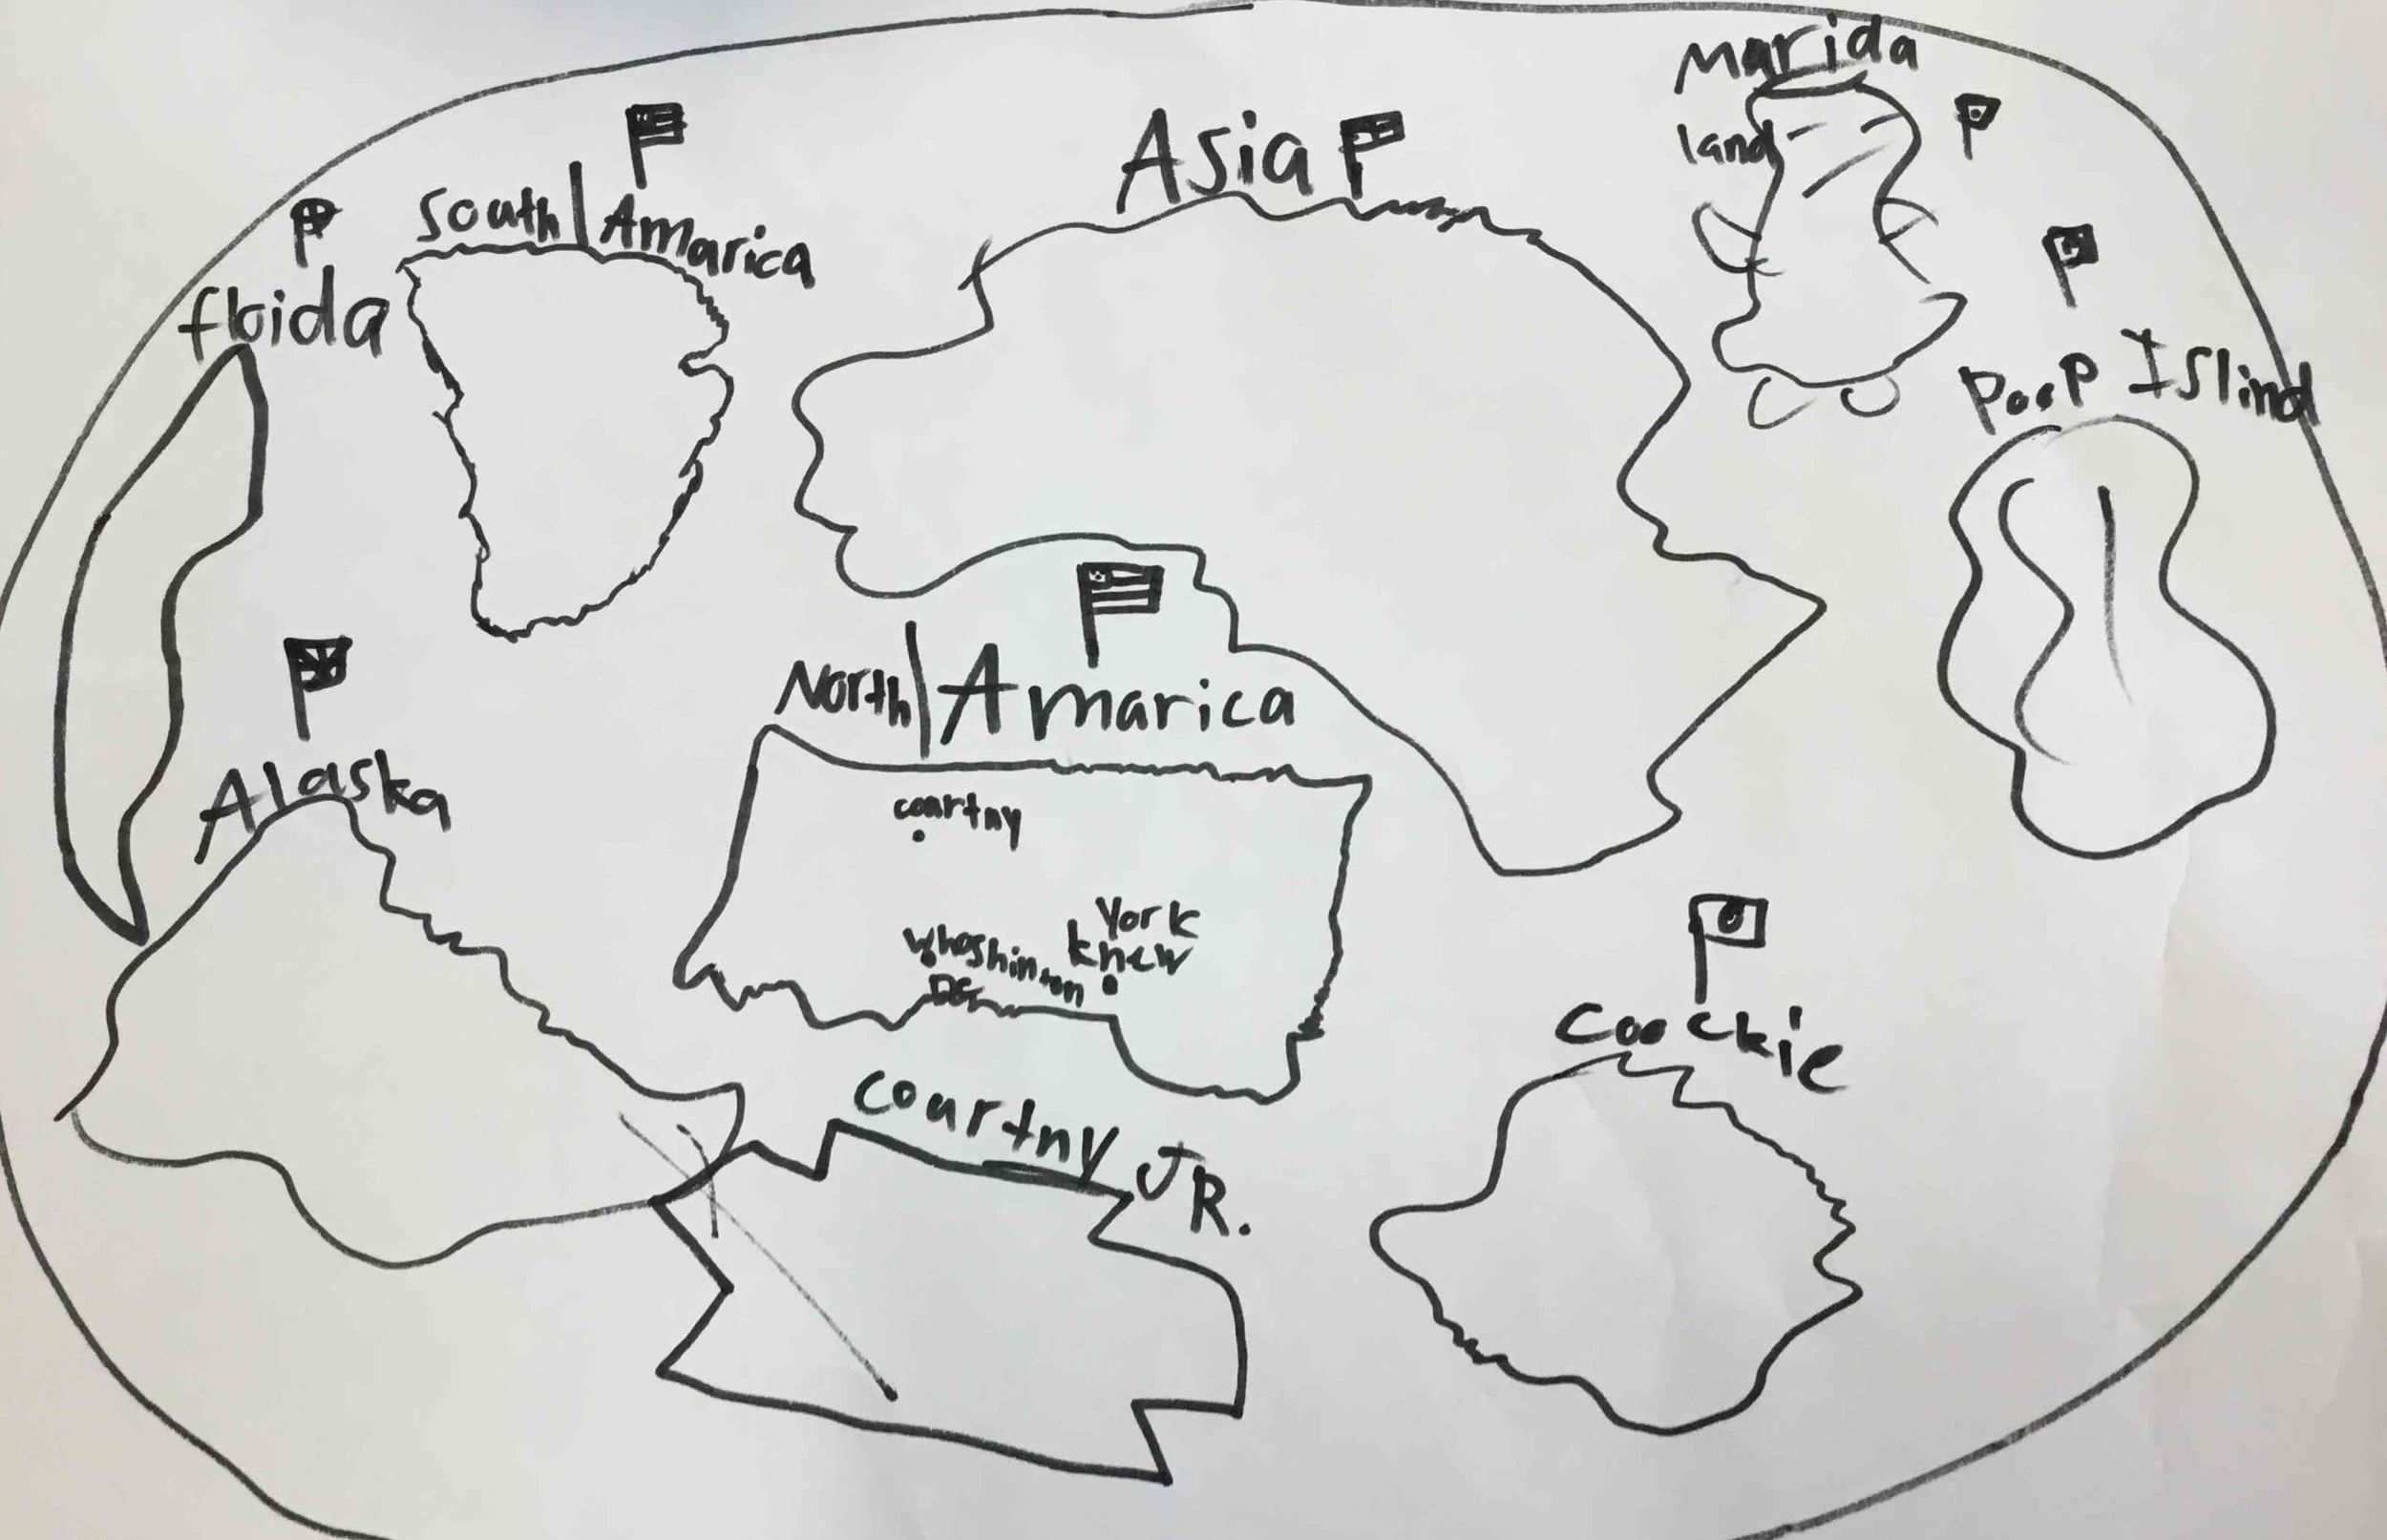 Marida
land
Asia
South | Amarica
floida
Poop Islind
North | Amarica
Alaska
courtny
York
knew
Whoshinton
DC
Coockie
Courtny JR.